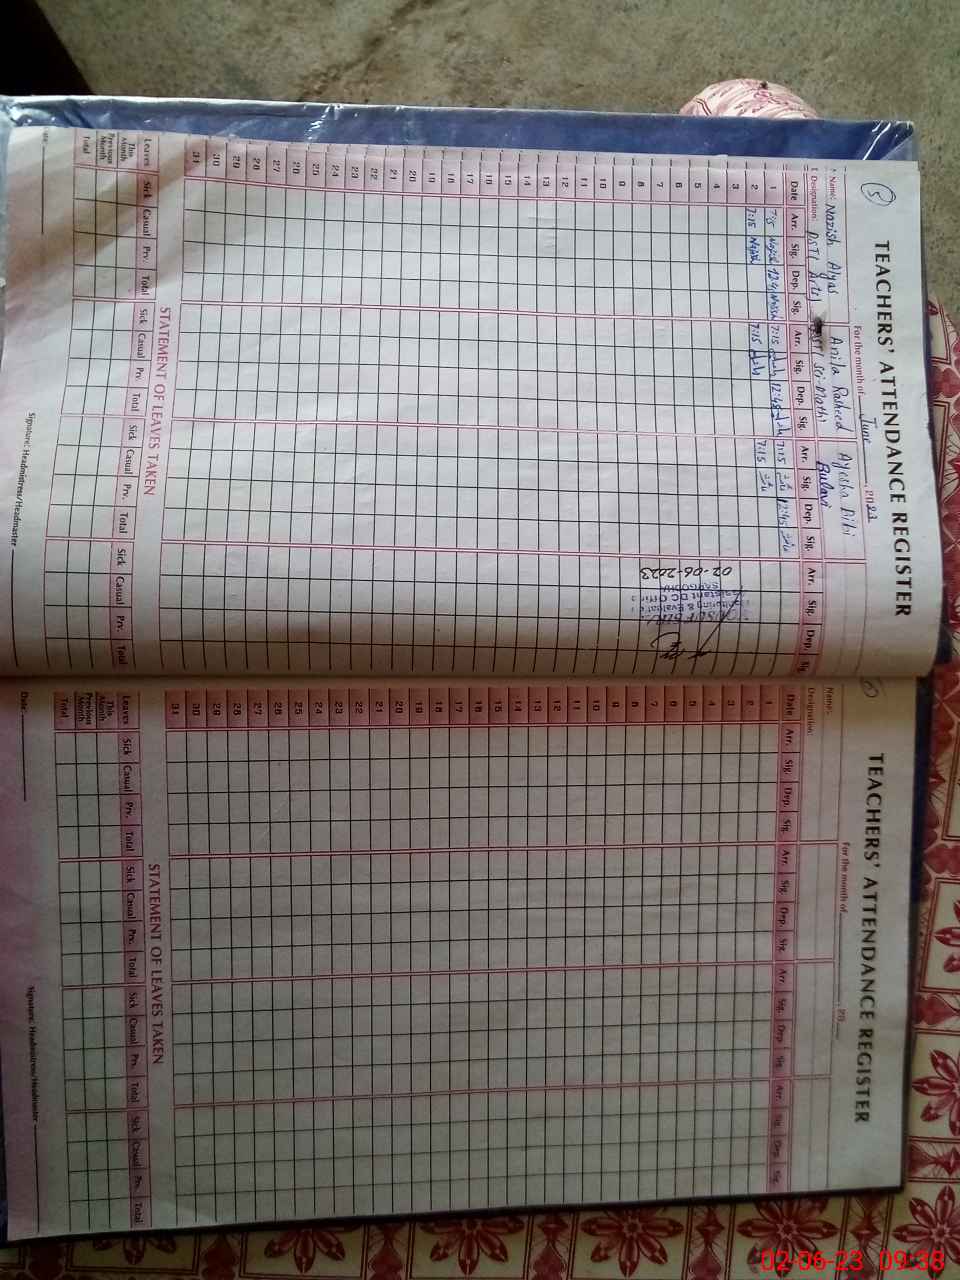 5
TEACHERS' ATTENDANCE REGISTER
For the month of June, 2023
Name: Nazish Alyas Anila Rasheed Ayesha Bibi
Designation: PST( Arts) PST( Sci-Math) Bulani
Date Arr. Sig. Dep. Sig. Arr. Sig. Dep. Sig. Arr. Sig. Dep. Sig. Arr. Sig. Dep. Sig.
1 7:15 12:45 7:15 12:45 7:15 12:45
2 7:15 7:15 7:15
3
4
5
6
7
8
9
10
11
12
13
14
15
16
17
18
19
20
21
22
23
24
25
26
27
28
29
30
31
Assistant D.C Office
SARGODHA
02-06-2023
STATEMENT OF LEAVES TAKEN
Leaves Sick Casual Prv. Total Sick Casual Prv. Total Sick Casual Prv. Total Sick Casual Prv. Total
This Month
Previous Month
Total
Signature: Headmistress/Headmaster
TEACHERS' ATTENDANCE REGISTER
For the month of , 20
Name:
Designation:
Date Arr. Sig. Dep. Sig. Arr. Sig. Dep. Sig. Arr. Sig. Dep. Sig. Arr. Sig. Dep. Sig.
1
2
3
4
5
6
7
8
9
10
11
12
13
14
15
16
17
18
19
20
21
22
23
24
25
26
27
28
29
30
31
STATEMENT OF LEAVES TAKEN
Leaves Sick Casual Prv. Total Sick Casual Prv. Total Sick Casual Prv. Total Sick Casual Prv. Total
This Month
Previous Month
Total
Date: Signature: Headmistress/Headmaster
02-06-23 09:38